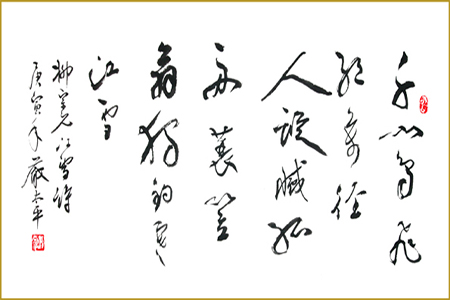 千山鳥飛
絕萬徑
人蹤滅孤
舟蓑笠
翁獨釣寒
江雪
柳宗元江雪詩
庚寅年嚴太平